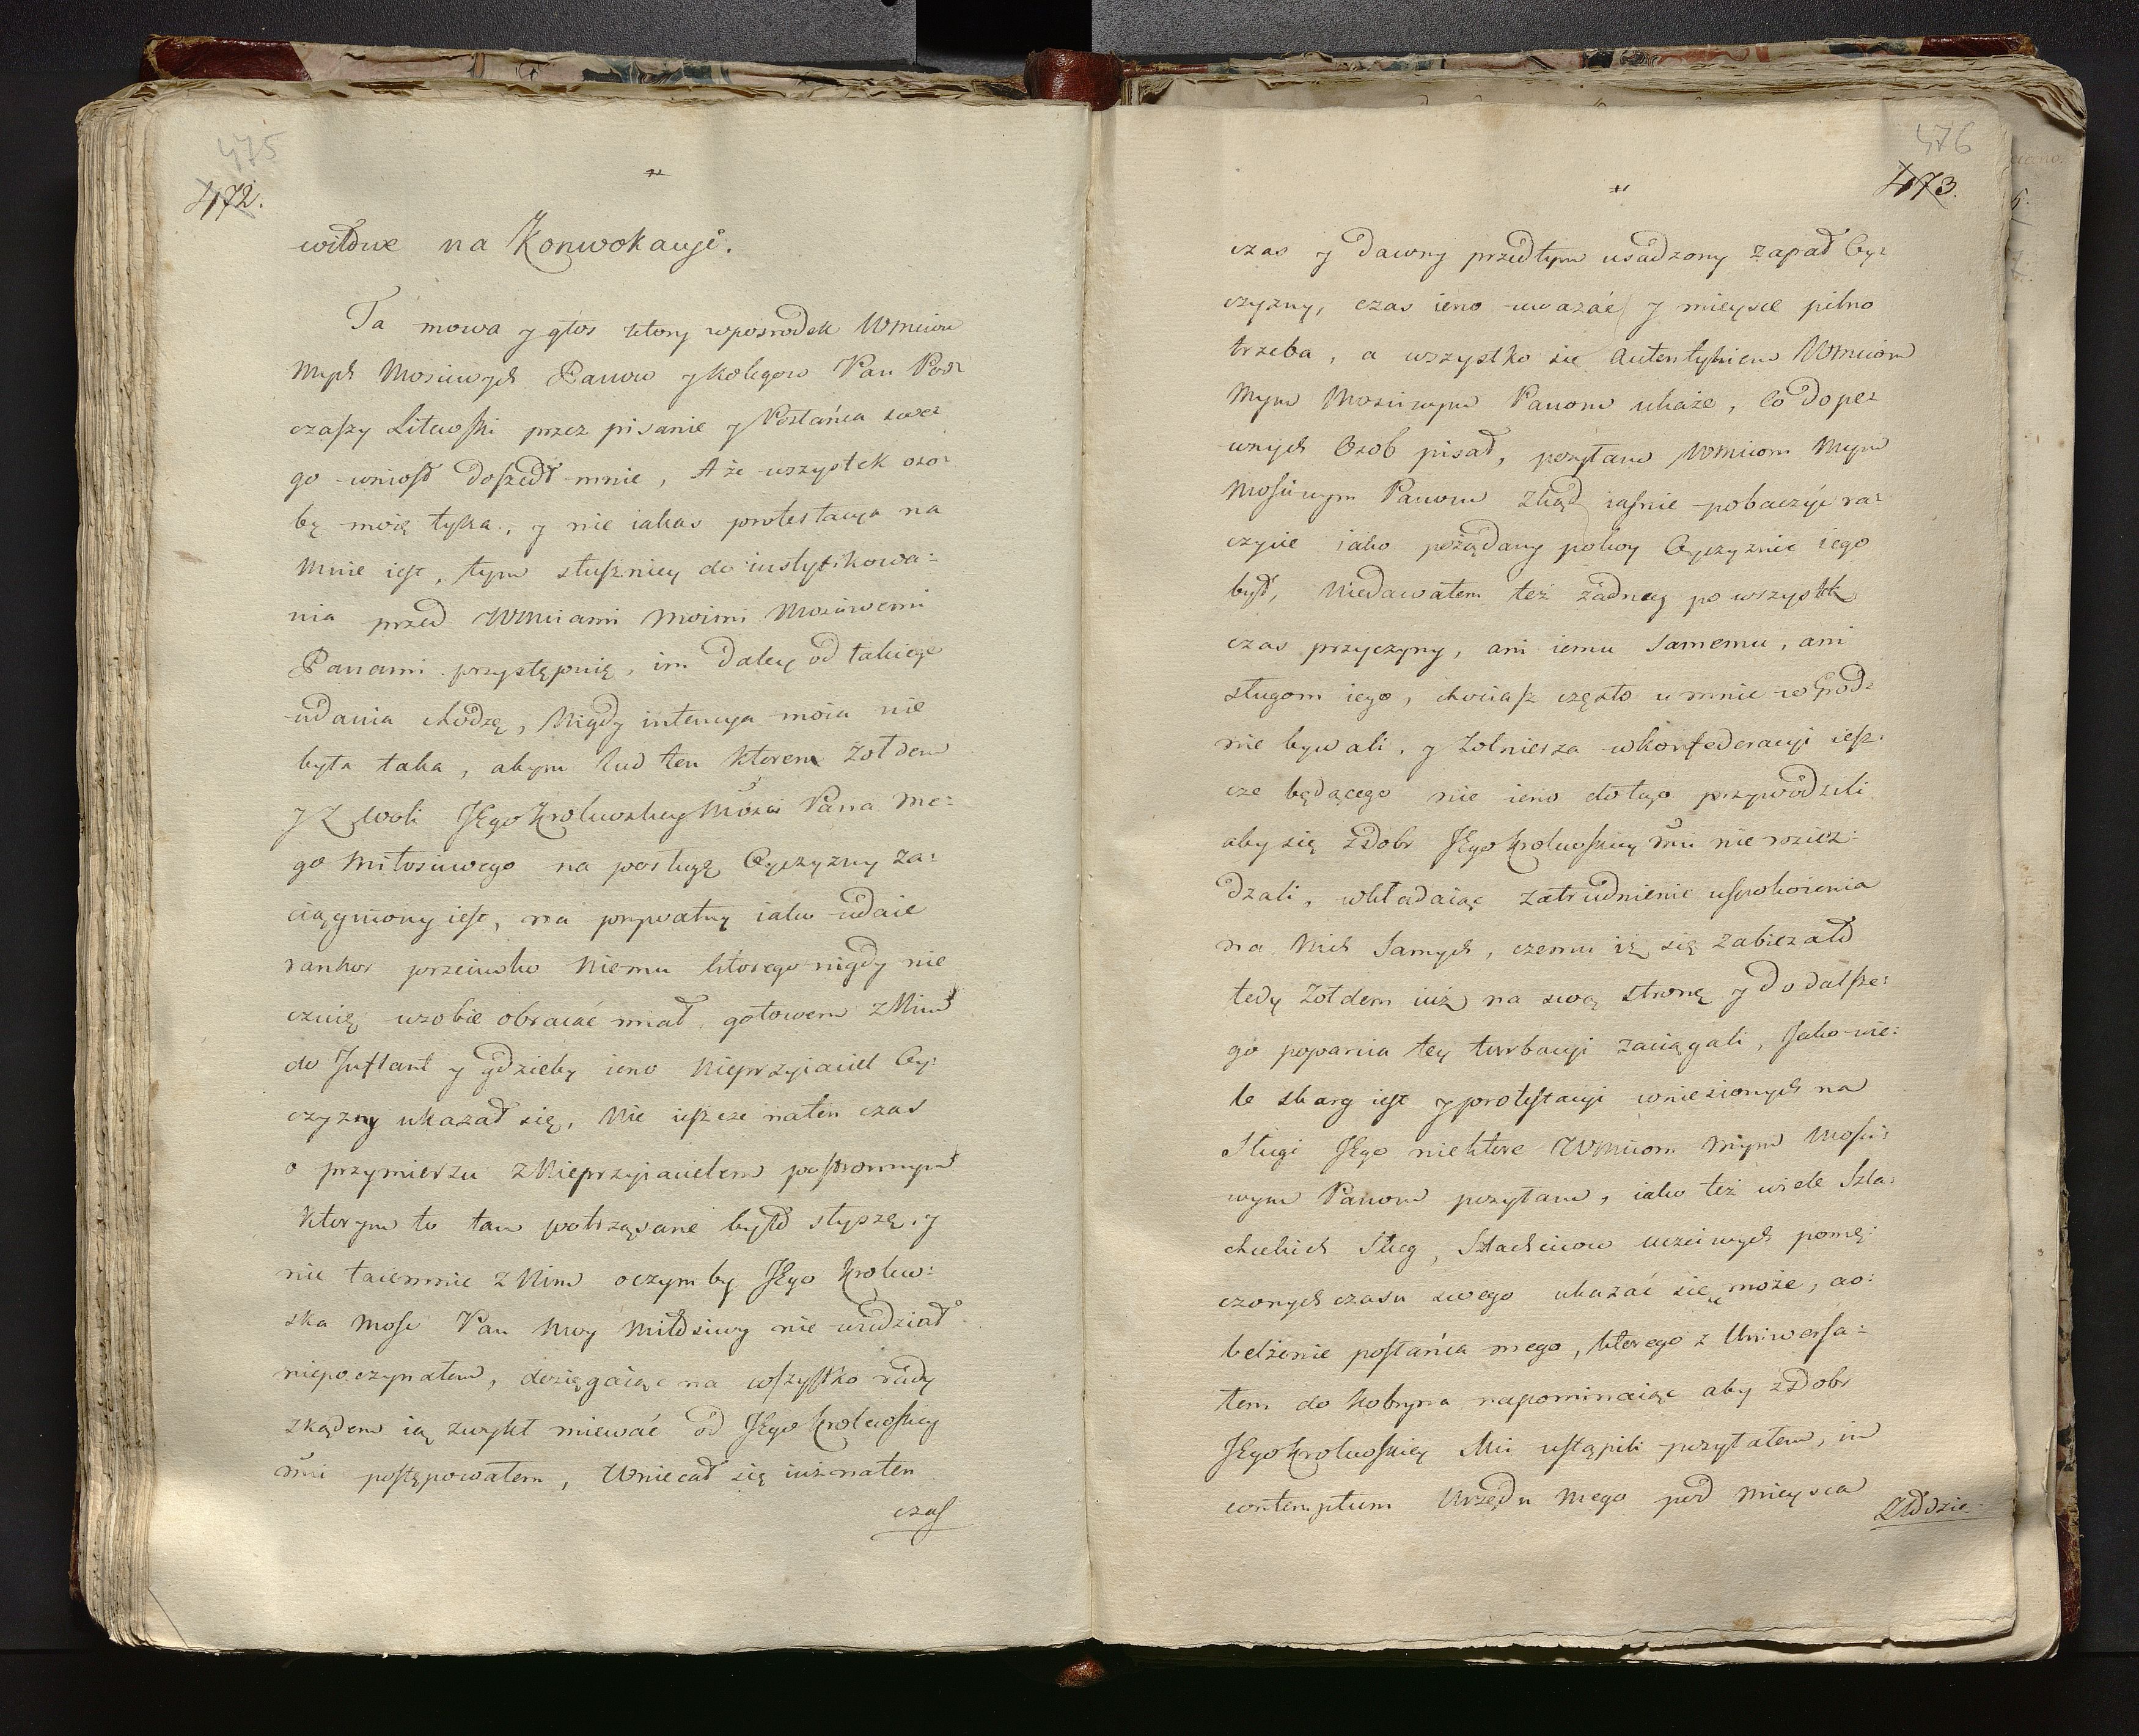 475
472.
wiłowe na Konwokacyi.
Ta mowa y głos ktory wposrodek Wmciow
Mych Mosciwych Panow y Kolegow Pan Pod:
czaszy Litewski przez pisanie y Posłańca swe:
go wniosł doszedł mnie, A że wszystek oso:
bę moię tyka, y nie iakas protestacya na
mnie iest, tym słuszniey do iustyfikowa:
nia przed Wmciami moimi Mosciwemi
Panami przystępuię, im daley od takiego
udania chodzę, Nigdy intencya moia nie
była taka, abym lud ten ktorem żołdem
y z woli JEgo Krolewskiey Mosci Pana me:
go Miłosciwego na posługę Oyczyzny za:
ciągniony iest, na prywatny iako udaie
rankor przeciwko Niemu ktorego nigdy nie
czuię wsobie obracać miał, gotowem z Nim
do Inflant y gdzieby ieno Nieprzyiaciel Oy:
czyzny ukazał się, Nie ieszcze naten czas
o przymierzu z Nieprzyiacielem postronnym
Ktorym to tam potrząsane było słyszę, y
nie taiemnie z Nim oczymby JEgo Krolew:
ska Mosc Pan Moy Miłosciwy nie widział
niepoczynałem, dosięgaiąc na wszystko rady
zkądem ią zwykł miewać od JEgo Krolewskiey
Mci postępowałem, Wniecał się iuż naten
czas
476
473.
czas y dawny przedtym usadzony zapał Oy:
czyzny, czas ieno uważać y mieysce pilno
trzeba, a wszystko się Autentykiem Wmciom
Mym Mosciwym Panom ukaże, Co do pe:
wnych Osob pisał, posyłam Wmciom Mym
Mosciwym Panom zkąd iasnie pobaczyć ra:
czycie iako pożądany pokoy Oyczyznie iego
był, Niedawałem też żadney po wszystek
czas przyczyny, ani iemu samemu, ani
sługom iego, chociasz często u mnie w Grod:
nie bywali, y żolnierza wkonfederacyi iesz:
cze będącego nie ieno do tego przywodzili
aby się z Dobr JEgo Krolewskiey Mci nie rozież:
dzali, wkładaiąc zatrudnienie uspokoienia
na Nich samych, czemu iż się zabieżało
tedy żołdem iuż na swą stronę y do dalsze:
go poparcia tey turbacyi zaciągali, Jako wie:
le skarg iest y protestacyi wniesionych na
Sługi JEgo niektore Wmciom mym Mosci:
wym Panom posyłam, iako też wiele Szla:
checkich Sług, Szlachcicow uczciwych pomę:
czonych czasu swego ukazać się może, ao:
belżenie posłańca mego, ktorego z Uniwersa:
łem do Kobrynia napominaiąc aby z Dobr
JEgo Krolewskiey Mci ustąpili posyłałem, in
contemptum Urzędu mego pod mieysca